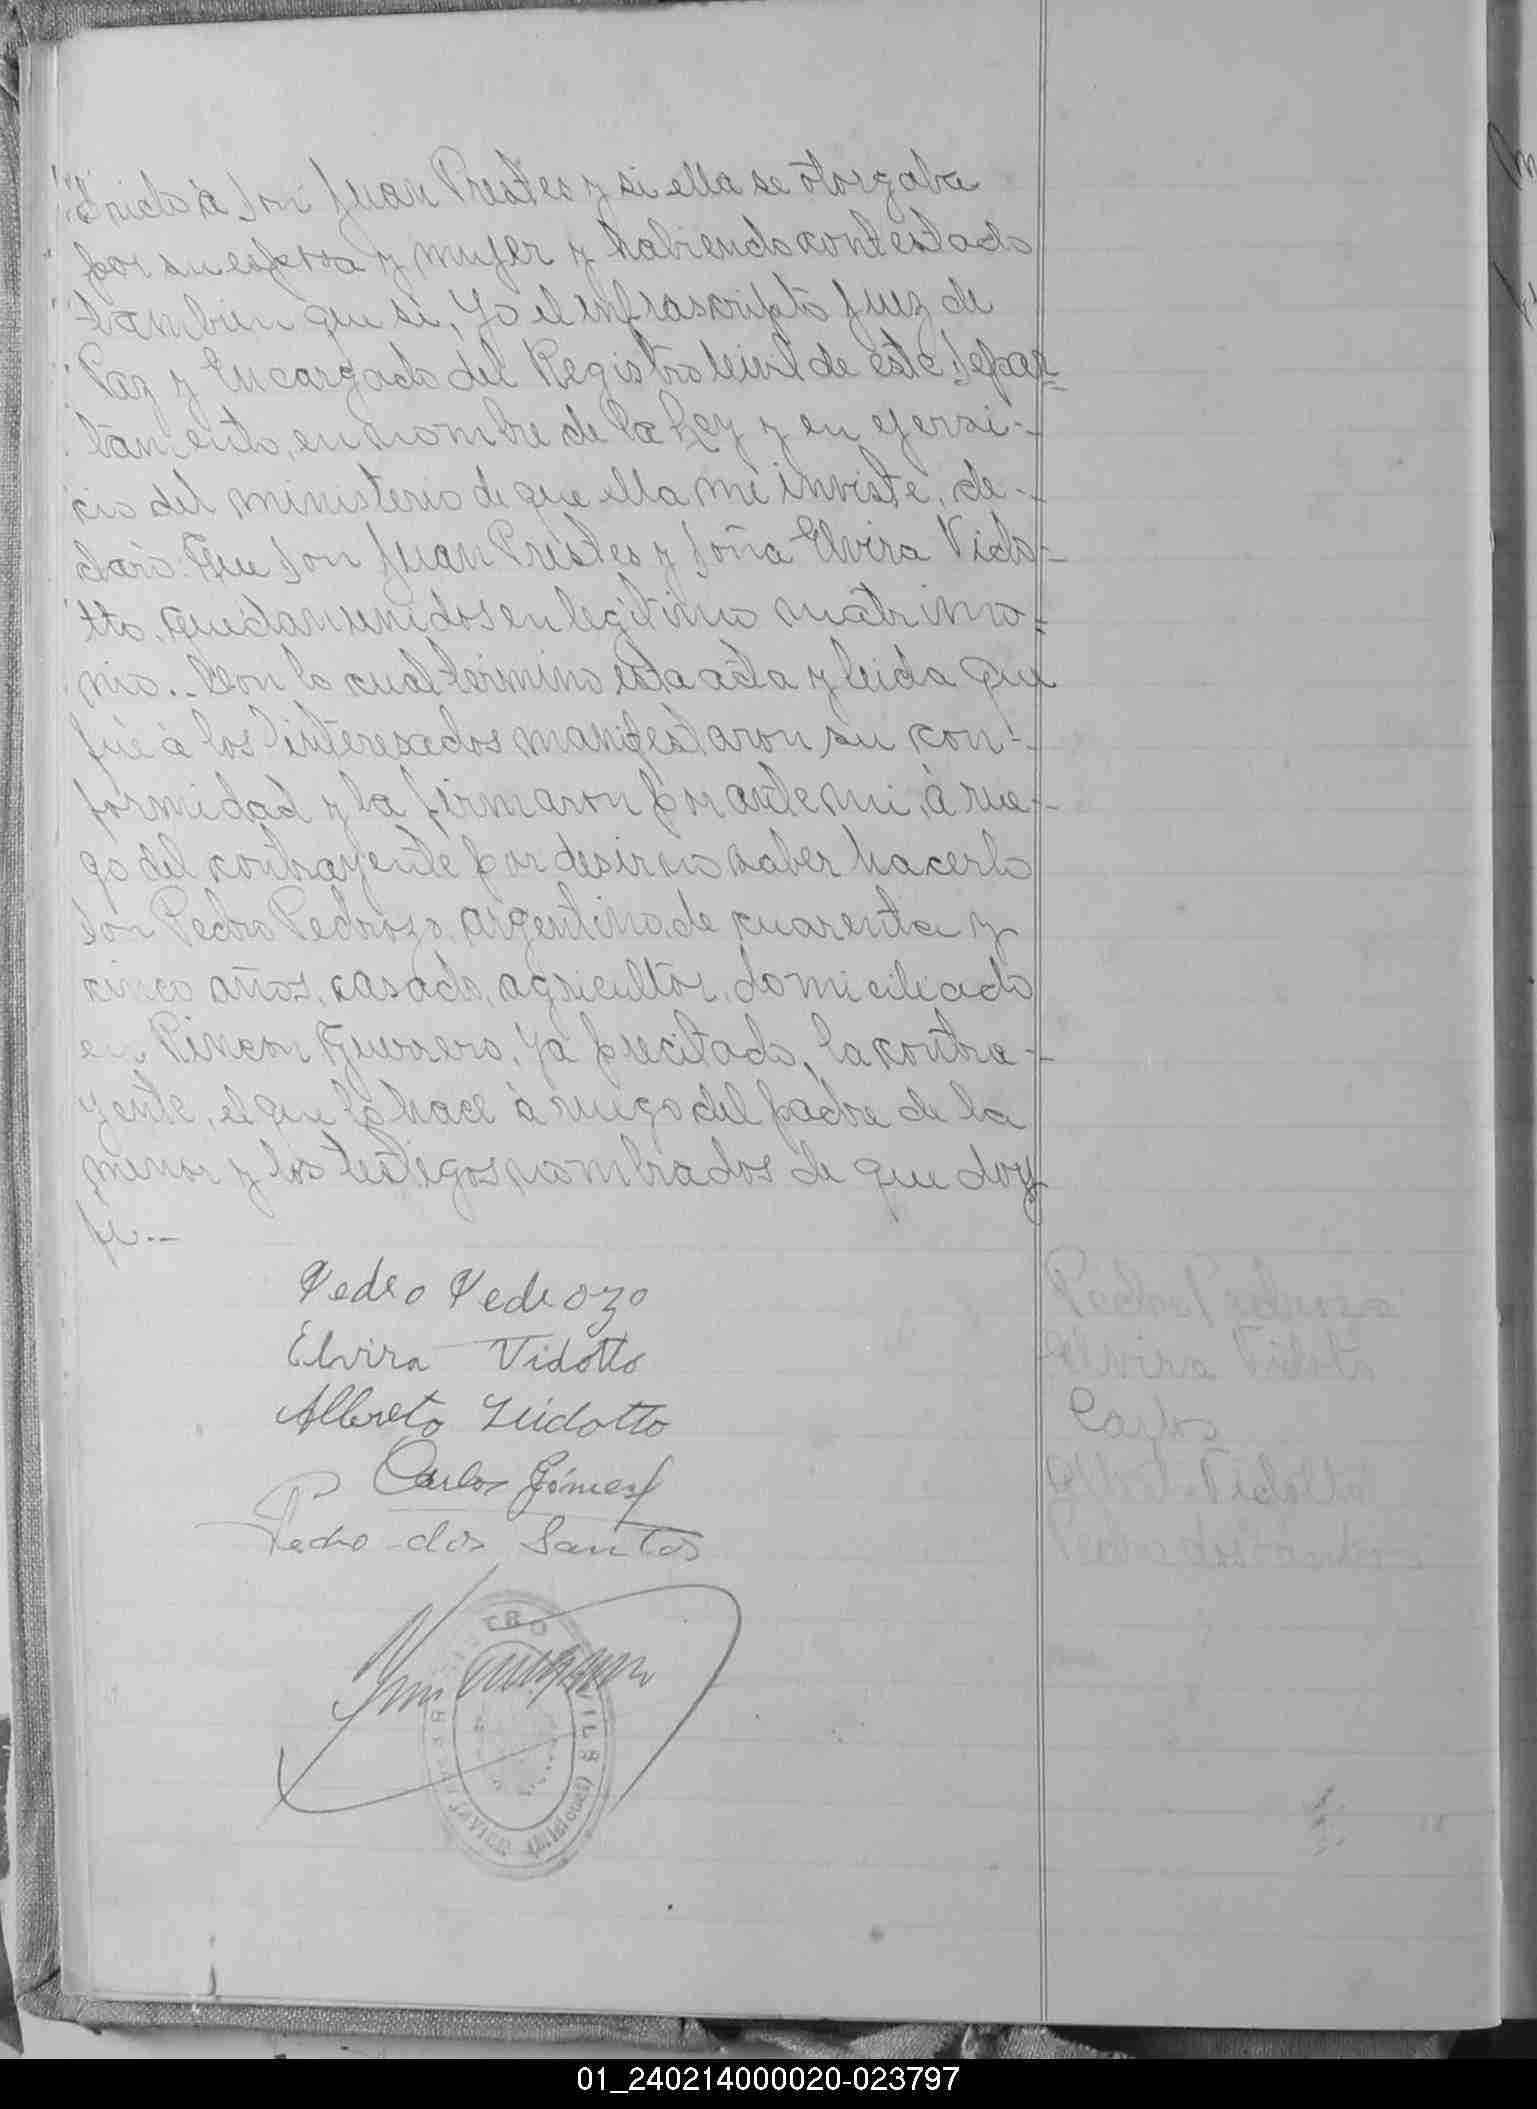 rido á Don Juan Prestes y si ella se otorgaba
por su esposa y mujer y habiendo contestado
tambien que si, Yo el infrascripto Juez de
Paz y Encargado del Registro Civil de este Depar=
tamento, en nombre de la Ley y en ejersi-
cio del ministerio de que ella me inviste, de-
claro: Que Don Juan Prestes y Doña Elvira Vido=
tto, quedan unidos en legitimo matrimo=
nio.- Con lo cual termino esta acta y leida que
fué á los interesados manifestaron su con-
formidad y la firmaron por ante mi, á rue-
go del contrayente por desir no saber hacerlo
Don Pedro Pedrozo, argentino, de cuarenta y
cinco años, casado, agricultor, domiciliado
en Rincon Guerrero, ya precitado, la contra-
yente, el que lo hace á ruego del padre de la
menor y los testigos nombrados de que doy
fé.--
Pedro Pedrozo
Elvira Vidotto
Alberto Vidotto
Carlos Gómes
Pedro dos Santos
Pedro Pedroso
Elvira Vidoto
Carlos
Vidotto
Pedro dos Santos
REGISTRO CIVIL
JAVIER (Misiones)
01_240214000020-023797